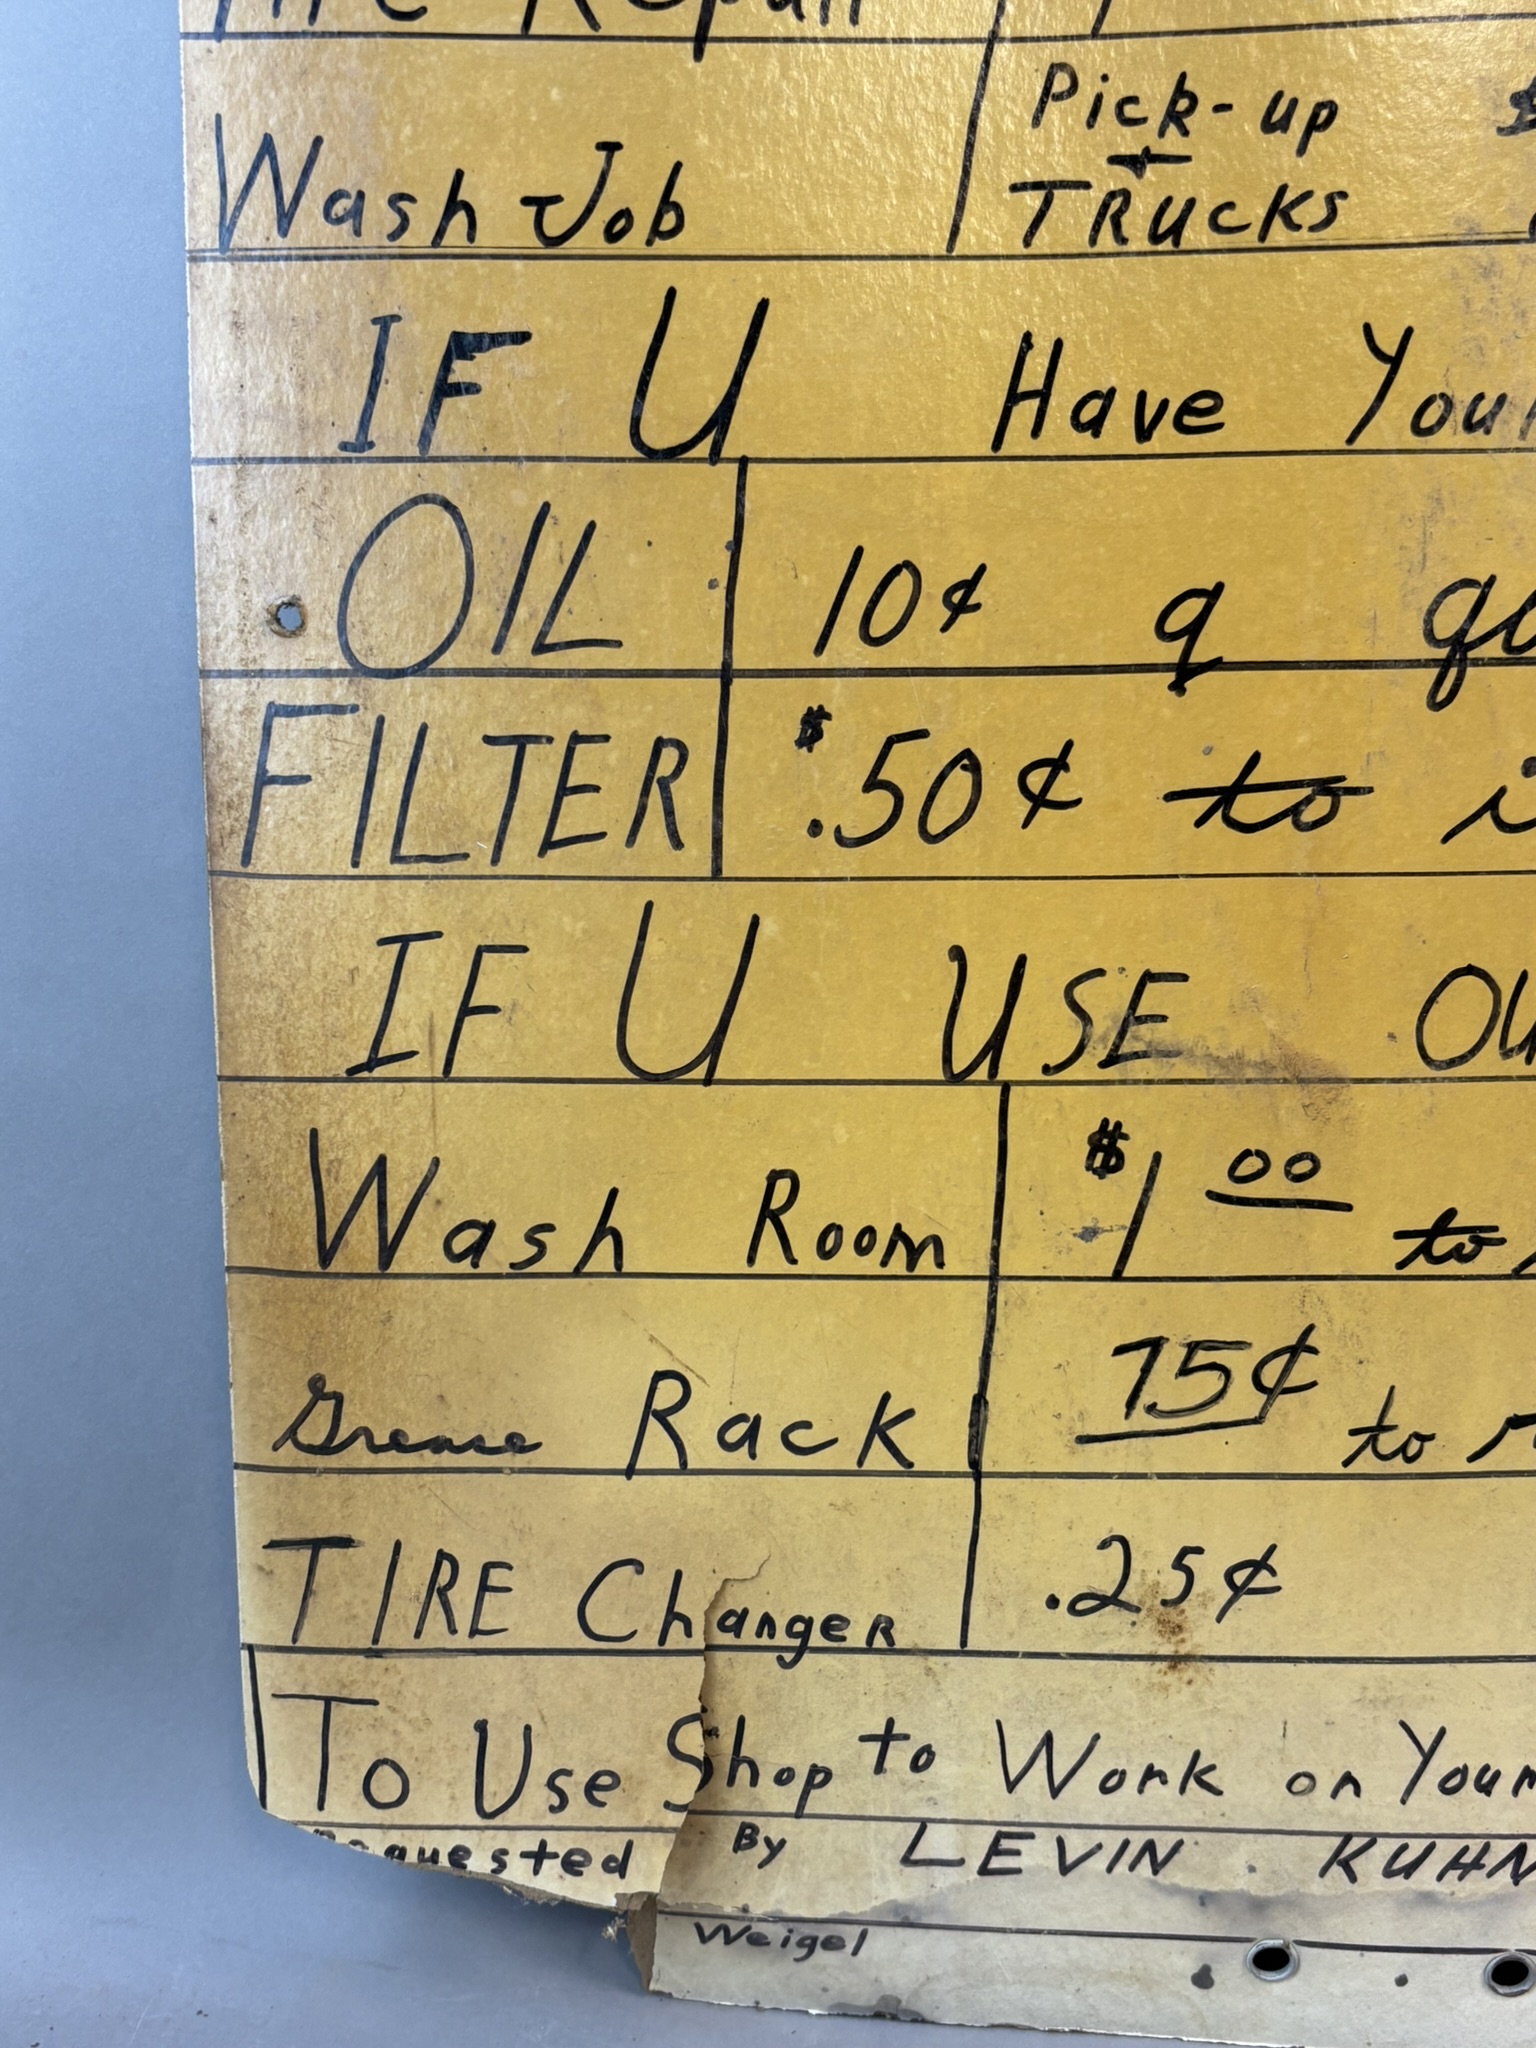 Repair
Pick-up
Wash Job TRUCKS
IF U Have Your
OIL 10¢ a
FILTER $.50¢ to
IF U USE
Wash Room $1 00 to
Grease Rack 75¢ to
TIRE Changer .25¢
To Use Shop to Work on Your
Requested By LEVIN KUHN
Weigel